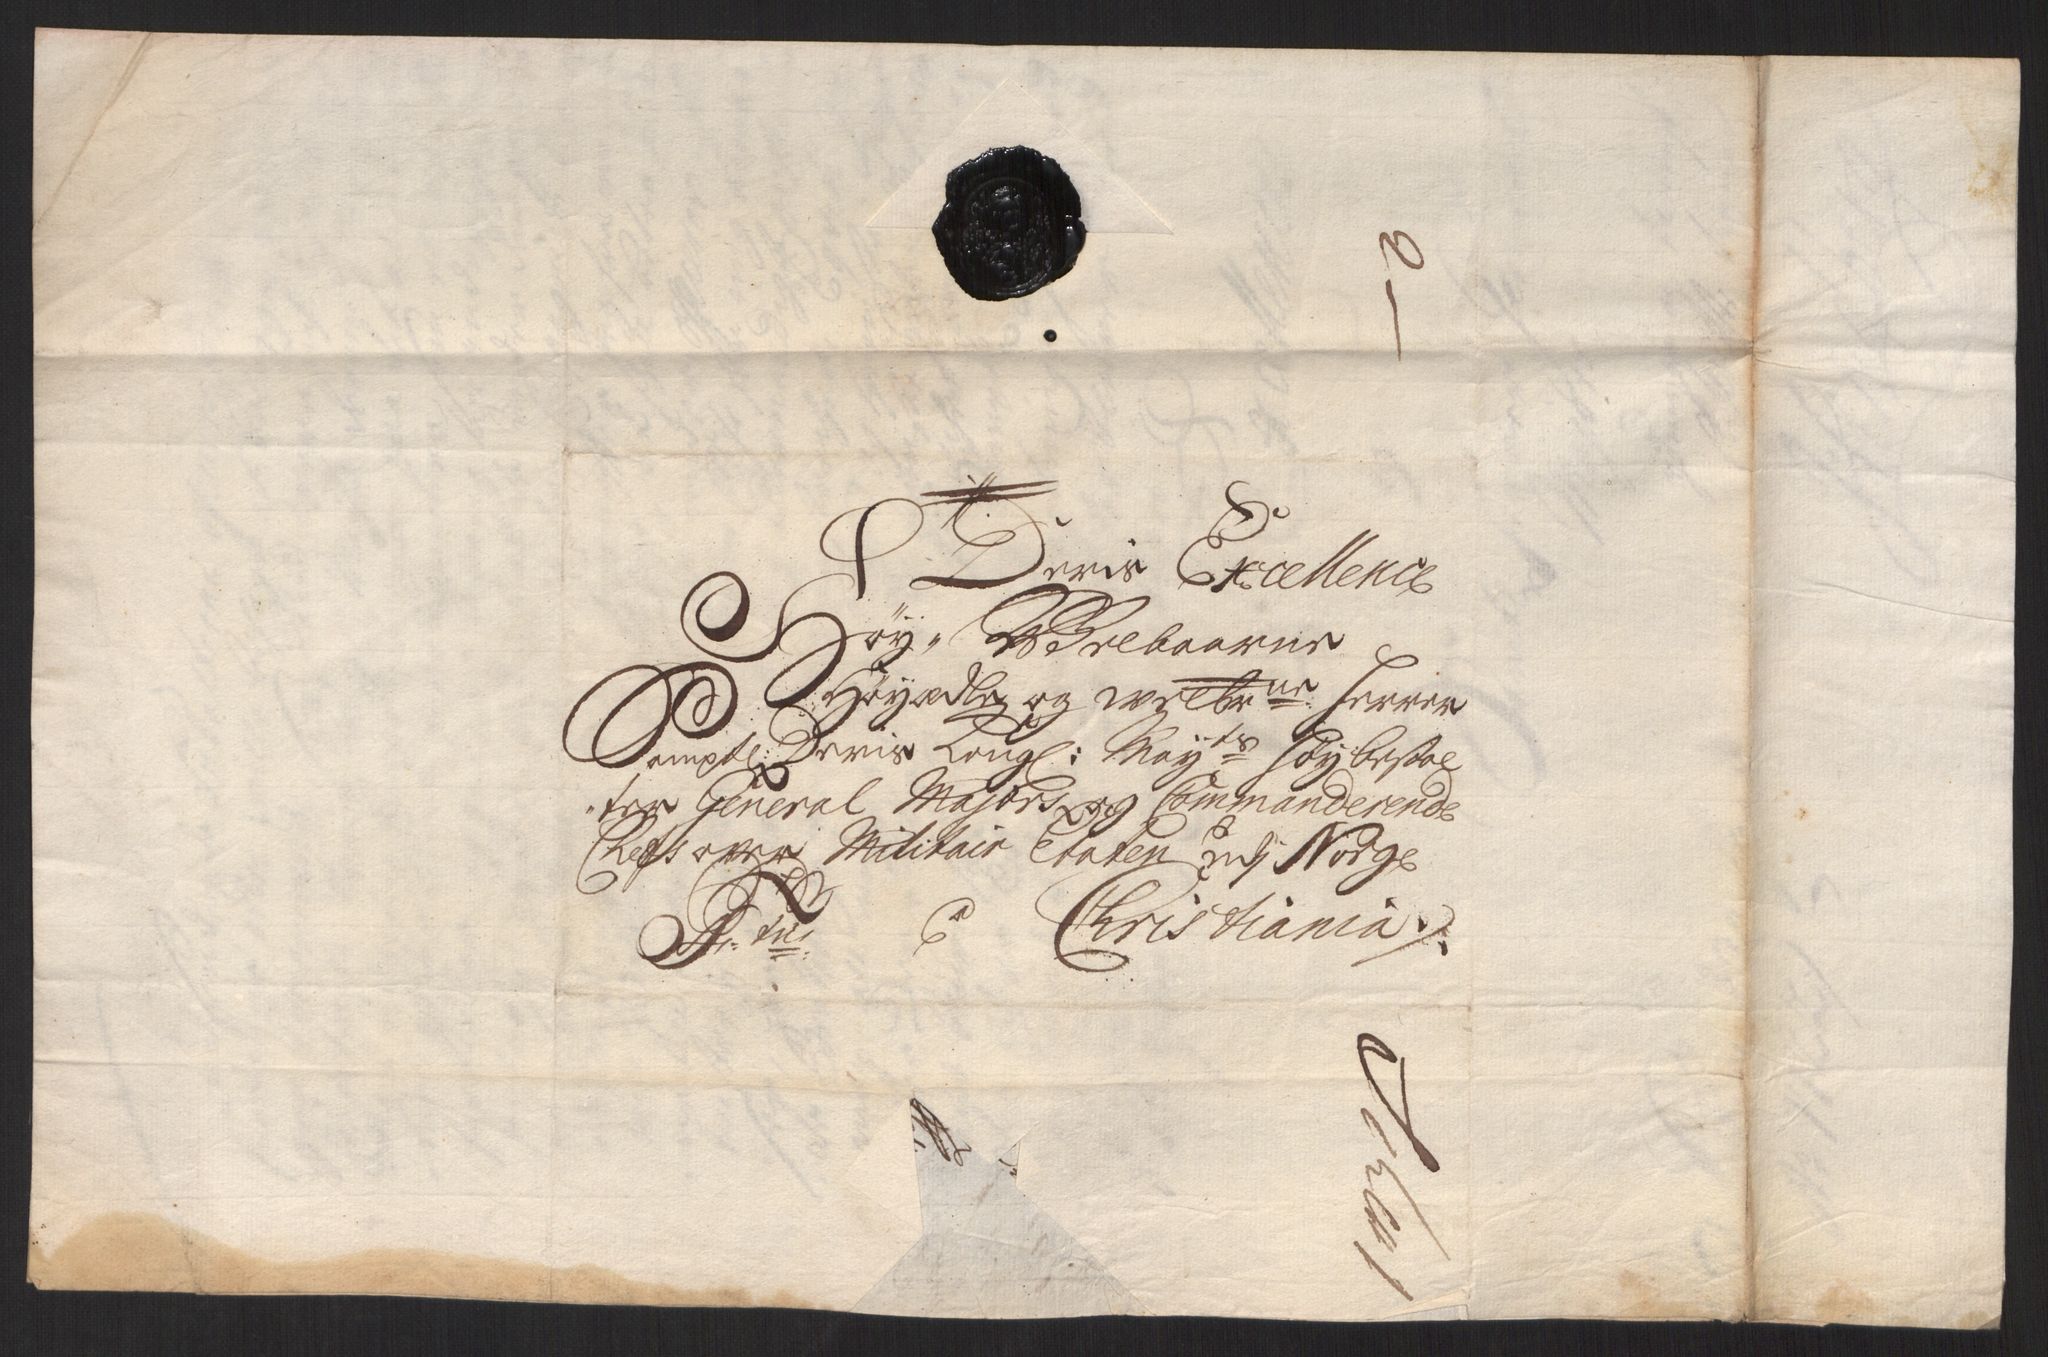 Deris Excellence
Høy-Welbaarne
Høyædle og velbr:ne Herrer
Samptl: Deris Kongl: Mayts Høybestal
ter General Majors og Commanderende
Chefs over Militair Etaten udj Norge
a Christiania